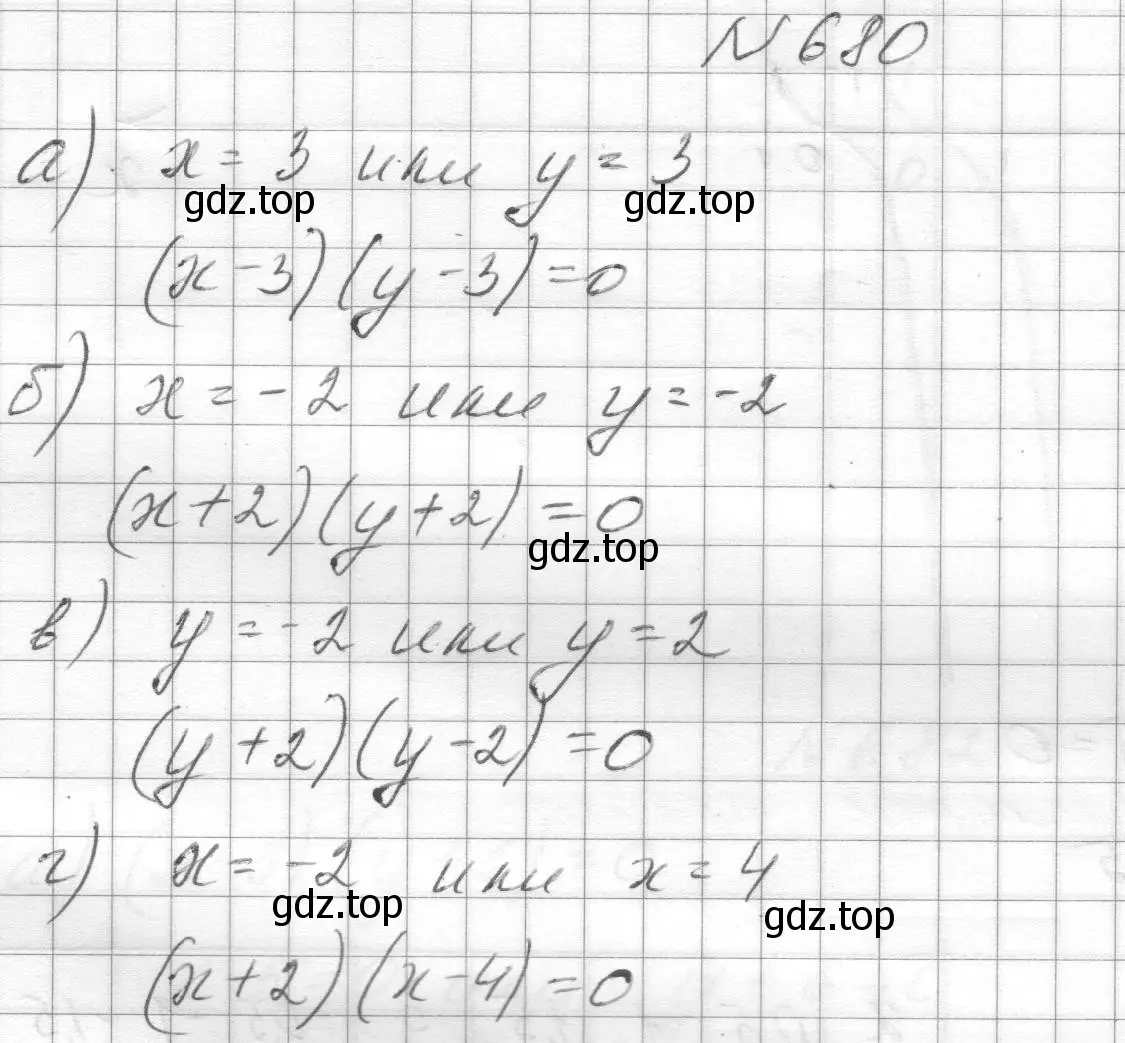 N 680
а) x = 3 или y = 3
gdz.top gdz.top
(x - 3) (y - 3) = 0
б) x = - 2 или y = -2
(x + 2) (y + 2) = 0
gdz.top
в) y = -2 или y = 2
(y + 2) (y - 2) = 0
г) x = -2 или x = 4
gdz.top gdz.top
(x + 2) (x - 4) = 0